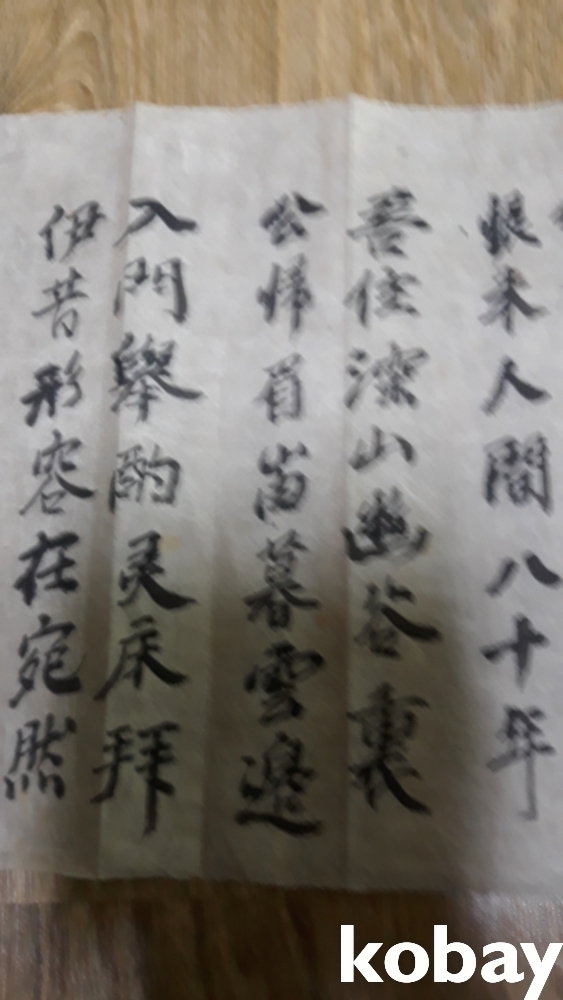 来人間八十年
住深山幽谷裏
公帰暮雲邊
入門舉酌灵床拜
伊昔形容在宛然
kobay